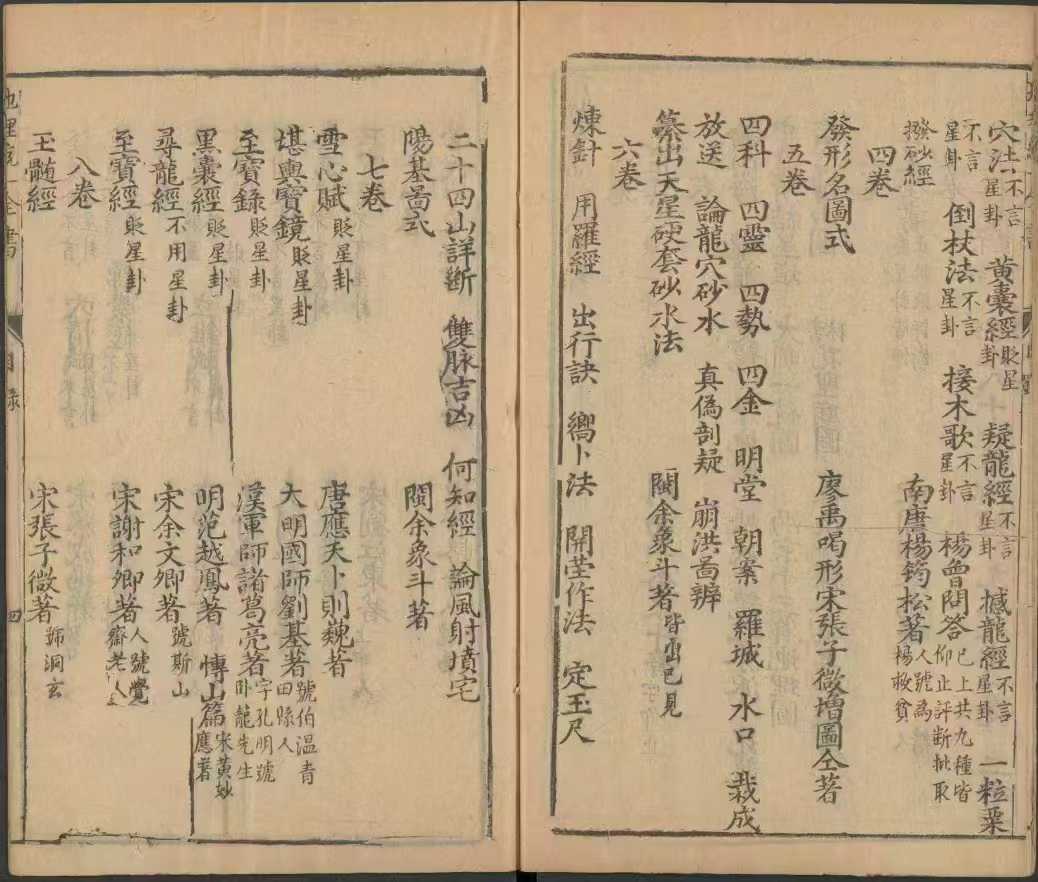 穴法不言星卦 黃囊經貶星卦 疑龍經不言星卦 撼龍經不言星卦 一粒粟
不言星卦 倒杖法不言星卦 接木歌不言星卦 楊曾問答已上共九種皆仰止評斷批取
撥砂經 南唐楊筠松著人號為楊救貧
四卷
發形名圖式 廖禹喝形宋張子微增圖仝著
五卷
四科 四靈 四勢 四金 明堂 朝案 羅城 水口 裁成
放送 論龍穴砂水 真偽剖疑 崩洪啚辨
纂出天星硬套砂水法 閩余象斗著皆出己見
六卷
煉針 用羅經 出行訣 嚮卜法 開茔作法 定玉尺
二十四山詳断 雙脉吉凶 何知經 論風射墳宅
陽基啚式 閩余象斗著
七卷
雪心賦貶星卦 唐應天卜則巍著
堪輿寶鏡貶星卦 大明國師劉基著號伯温青田縣人
至寶錄貶星卦 漢軍師諸葛亮著字孔明號卧龍先生
黑囊經貶星卦 明范越鳳著 愽山篇宋黃妙應著
尋龍經不用星卦 宋余文卿著號斯山
至寶經貶星卦 宋謝和卿著人號覺齋老人
八卷
玉髓經 宋張子微著號洞玄
地理 全書
目錄
四